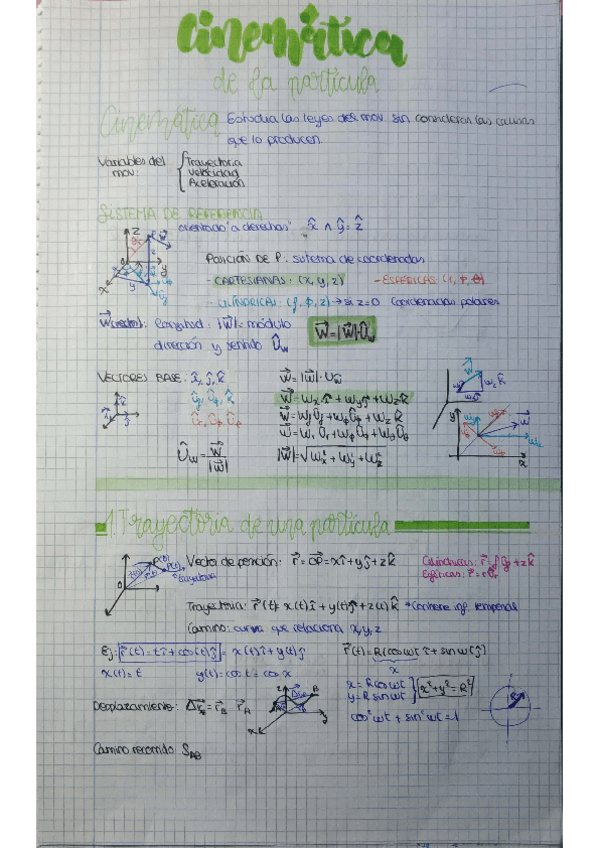 Cinemática
de la partícula
Cinemática Estudia las leyes del mov. sin considerar las causas
que lo producen.
Variables del mov: { Trayectoria
Velocidad
Aceleración
SISTEMA DE REFERENCIA
orientado "a derechas" x̂ ∧ ŷ = ẑ
POSICIÓN DE P: sistema de coordenadas
- CARTESIANAS: (x, y, z) - ESFÉRICAS: (r, φ, θ)
- CILÍNDRICAS: (ρ, φ, z) → si z=0 coordenadas polares
W⃗ (vector): longitud: |W⃗| = módulo
dirección y sentido Û_w W⃗ = |W⃗|·Û_w
VECTORES BASE: î, ĵ, k̂ W⃗ = |W⃗|·U_w
Û_ρ, Û_φ, k̂ W⃗ = w_x î + w_y ĵ + w_z k̂
Û_r, Û_φ, Û_θ W⃗ = w_ρ Û_ρ + w_φ Û_φ + w_z k̂
W⃗ = w_r Û_r + w_φ Û_φ + w_θ Û_θ
Û_w = W⃗/|W⃗| |W⃗| = √(w_x² + w_y² + w_z²)
1. Trayectoria de una partícula
Vector de posición: r⃗ = OP⃗ = xî + yĵ + zk̂ Cilíndricas: r⃗ = ρÛ_ρ + zk̂
Esféricas: r⃗ = rÛ_r
Trayectoria: r⃗(t) = x(t)î + y(t)ĵ + z(t)k̂ *Contiene inf. temporal
Camino: curva que relaciona x, y, z
Ej: r⃗(t) = tî + cos(t)ĵ = x(t)î + y(t)ĵ r⃗(t) = R(cos wt î + sin wt ĵ)
x(t) = t y(t) = cos t = cos x x = R cos wt
y = R sin wt } x² + y² = R²
Desplazamiento: Δr⃗ = r⃗_B - r⃗_A cos² wt + sin² wt = 1
Camino recorrido S_AB